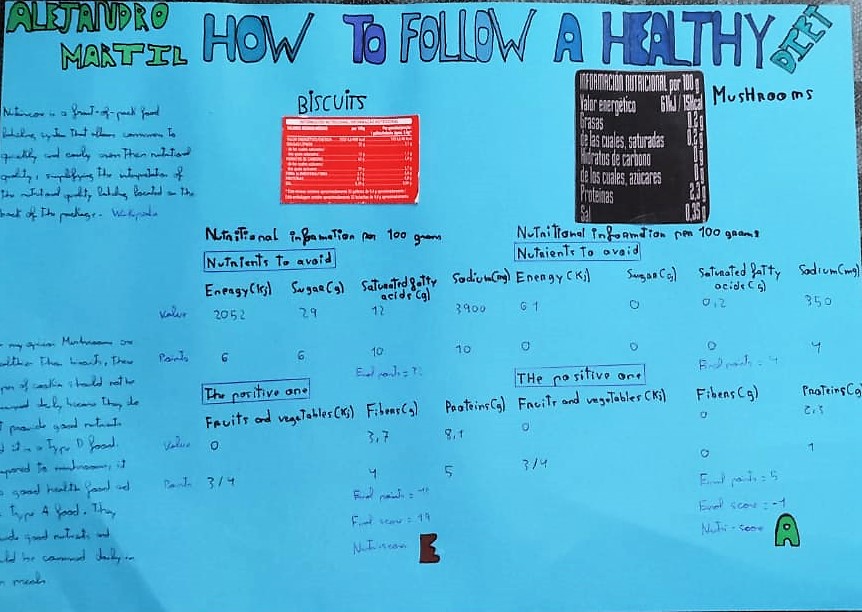 ALEJANDRO
MARTIL
HOW TO FOLLOW A HEALTHY DIET
Nutriscore is a front-of-pack food
labeling system that allows consumers to
quickly and easily the nutritional
quality, simplifying the interpretation of
the nutritional quality labeling located on the
back of the package. Wikipedia
BISCUITS
MUSHROOMS
INFORMACIÓN NUTRICIONAL por 100 g
Valor energético 61kJ / 15kcal
Grasas 0,2g
de las cuales, saturadas 0,2g
Hidratos de carbono 0g
de los cuales, azúcares 0g
Proteínas 2,3g
Sal 0,35g
Nutritional information per 100 grams
Nutrients to avoid
Energy(Kj) Sugar(g) Saturated fatty acids(g) Sodium(mg)
Value 2052 29 12 3900
Points 6 6 10 10
The positive one
Fruits and vegetables(Kj) Fibers(g) Proteins(g)
Value 0 3,7 8,1
Points 3/4 4 5
Final score = 19
Nutriscore E
Nutritional information per 100 grams
Nutrients to avoid
Energy(Kj) Sugar(g) Saturated fatty acids(g) Sodium(mg)
61 0 0,2 350
0 0 0 4
Final points = 4
THe positive one
Fruits and vegetables(Kj) Fibers(g) Proteins(g)
0 0 2,3
3/4 0 1
Final points = 5
Final score = -1
Nutri-score A
my opinion Mushrooms are
than biscuits, these
of cookies should not be
daily because they do
provide good nutrients
it is a Type D food.
to mushrooms, it
good health food and
Type A food. They
good nutrients and
be consumed daily in
meals